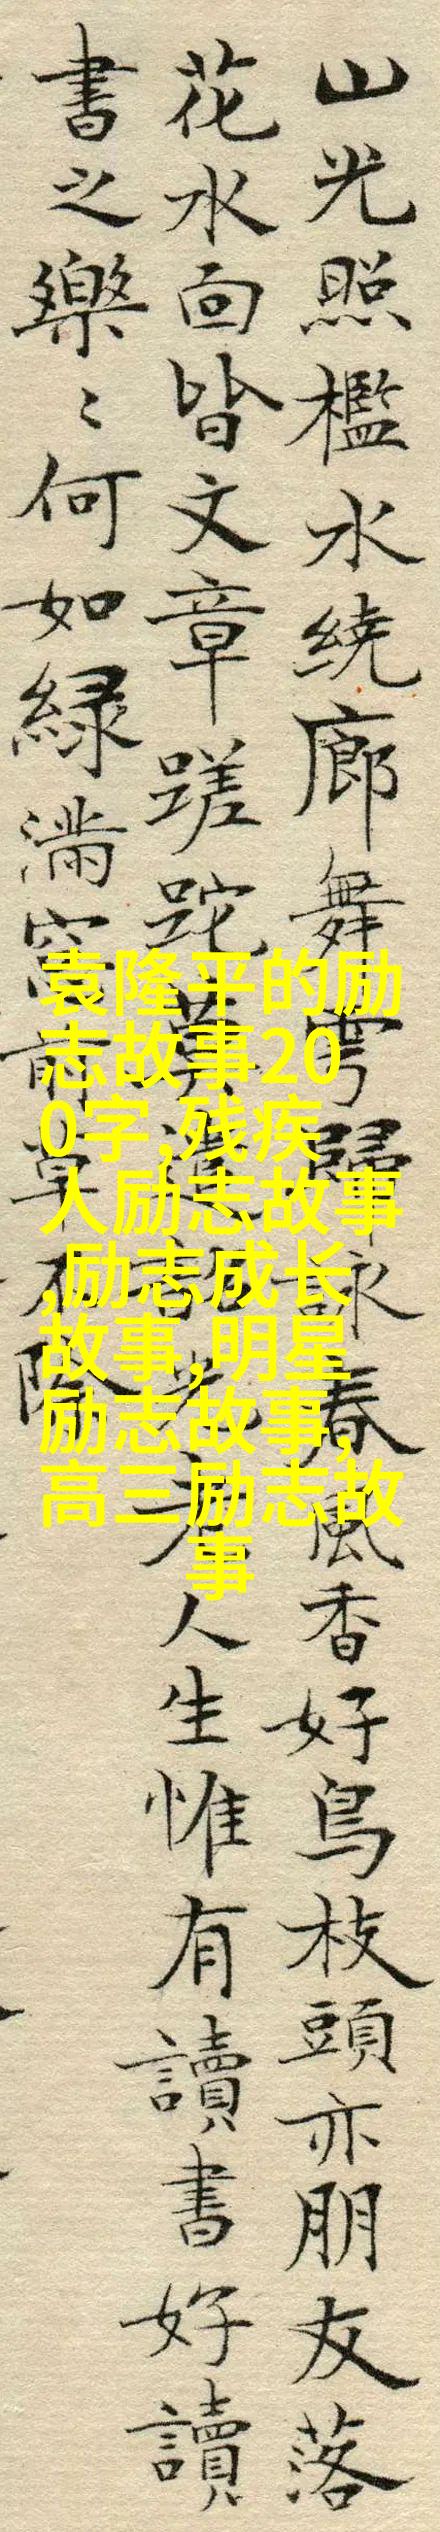 山光照檻水繞廊舞雩歸詠春風香好鳥枝頭亦朋友落
花水面皆文章蹉跎莫遣韶光老人生惟有讀書好讀
書之樂〻何如緑滿窗前草不除
袁隆平的励
志故事20
0字,残疾
人励志故事
,励志成长
故事,明星
励志故事,
高三励志故
事